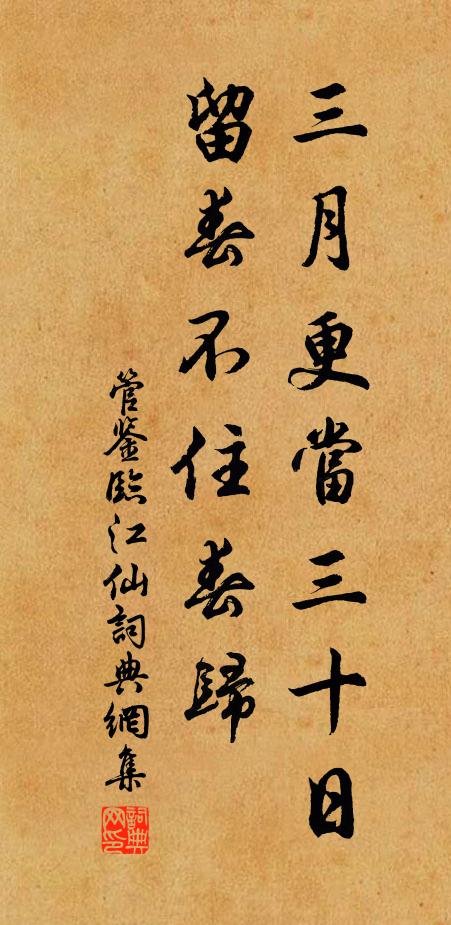 三月更當三十日
留春不住春歸
管鉴臨江仙詞典網集
詞典网印